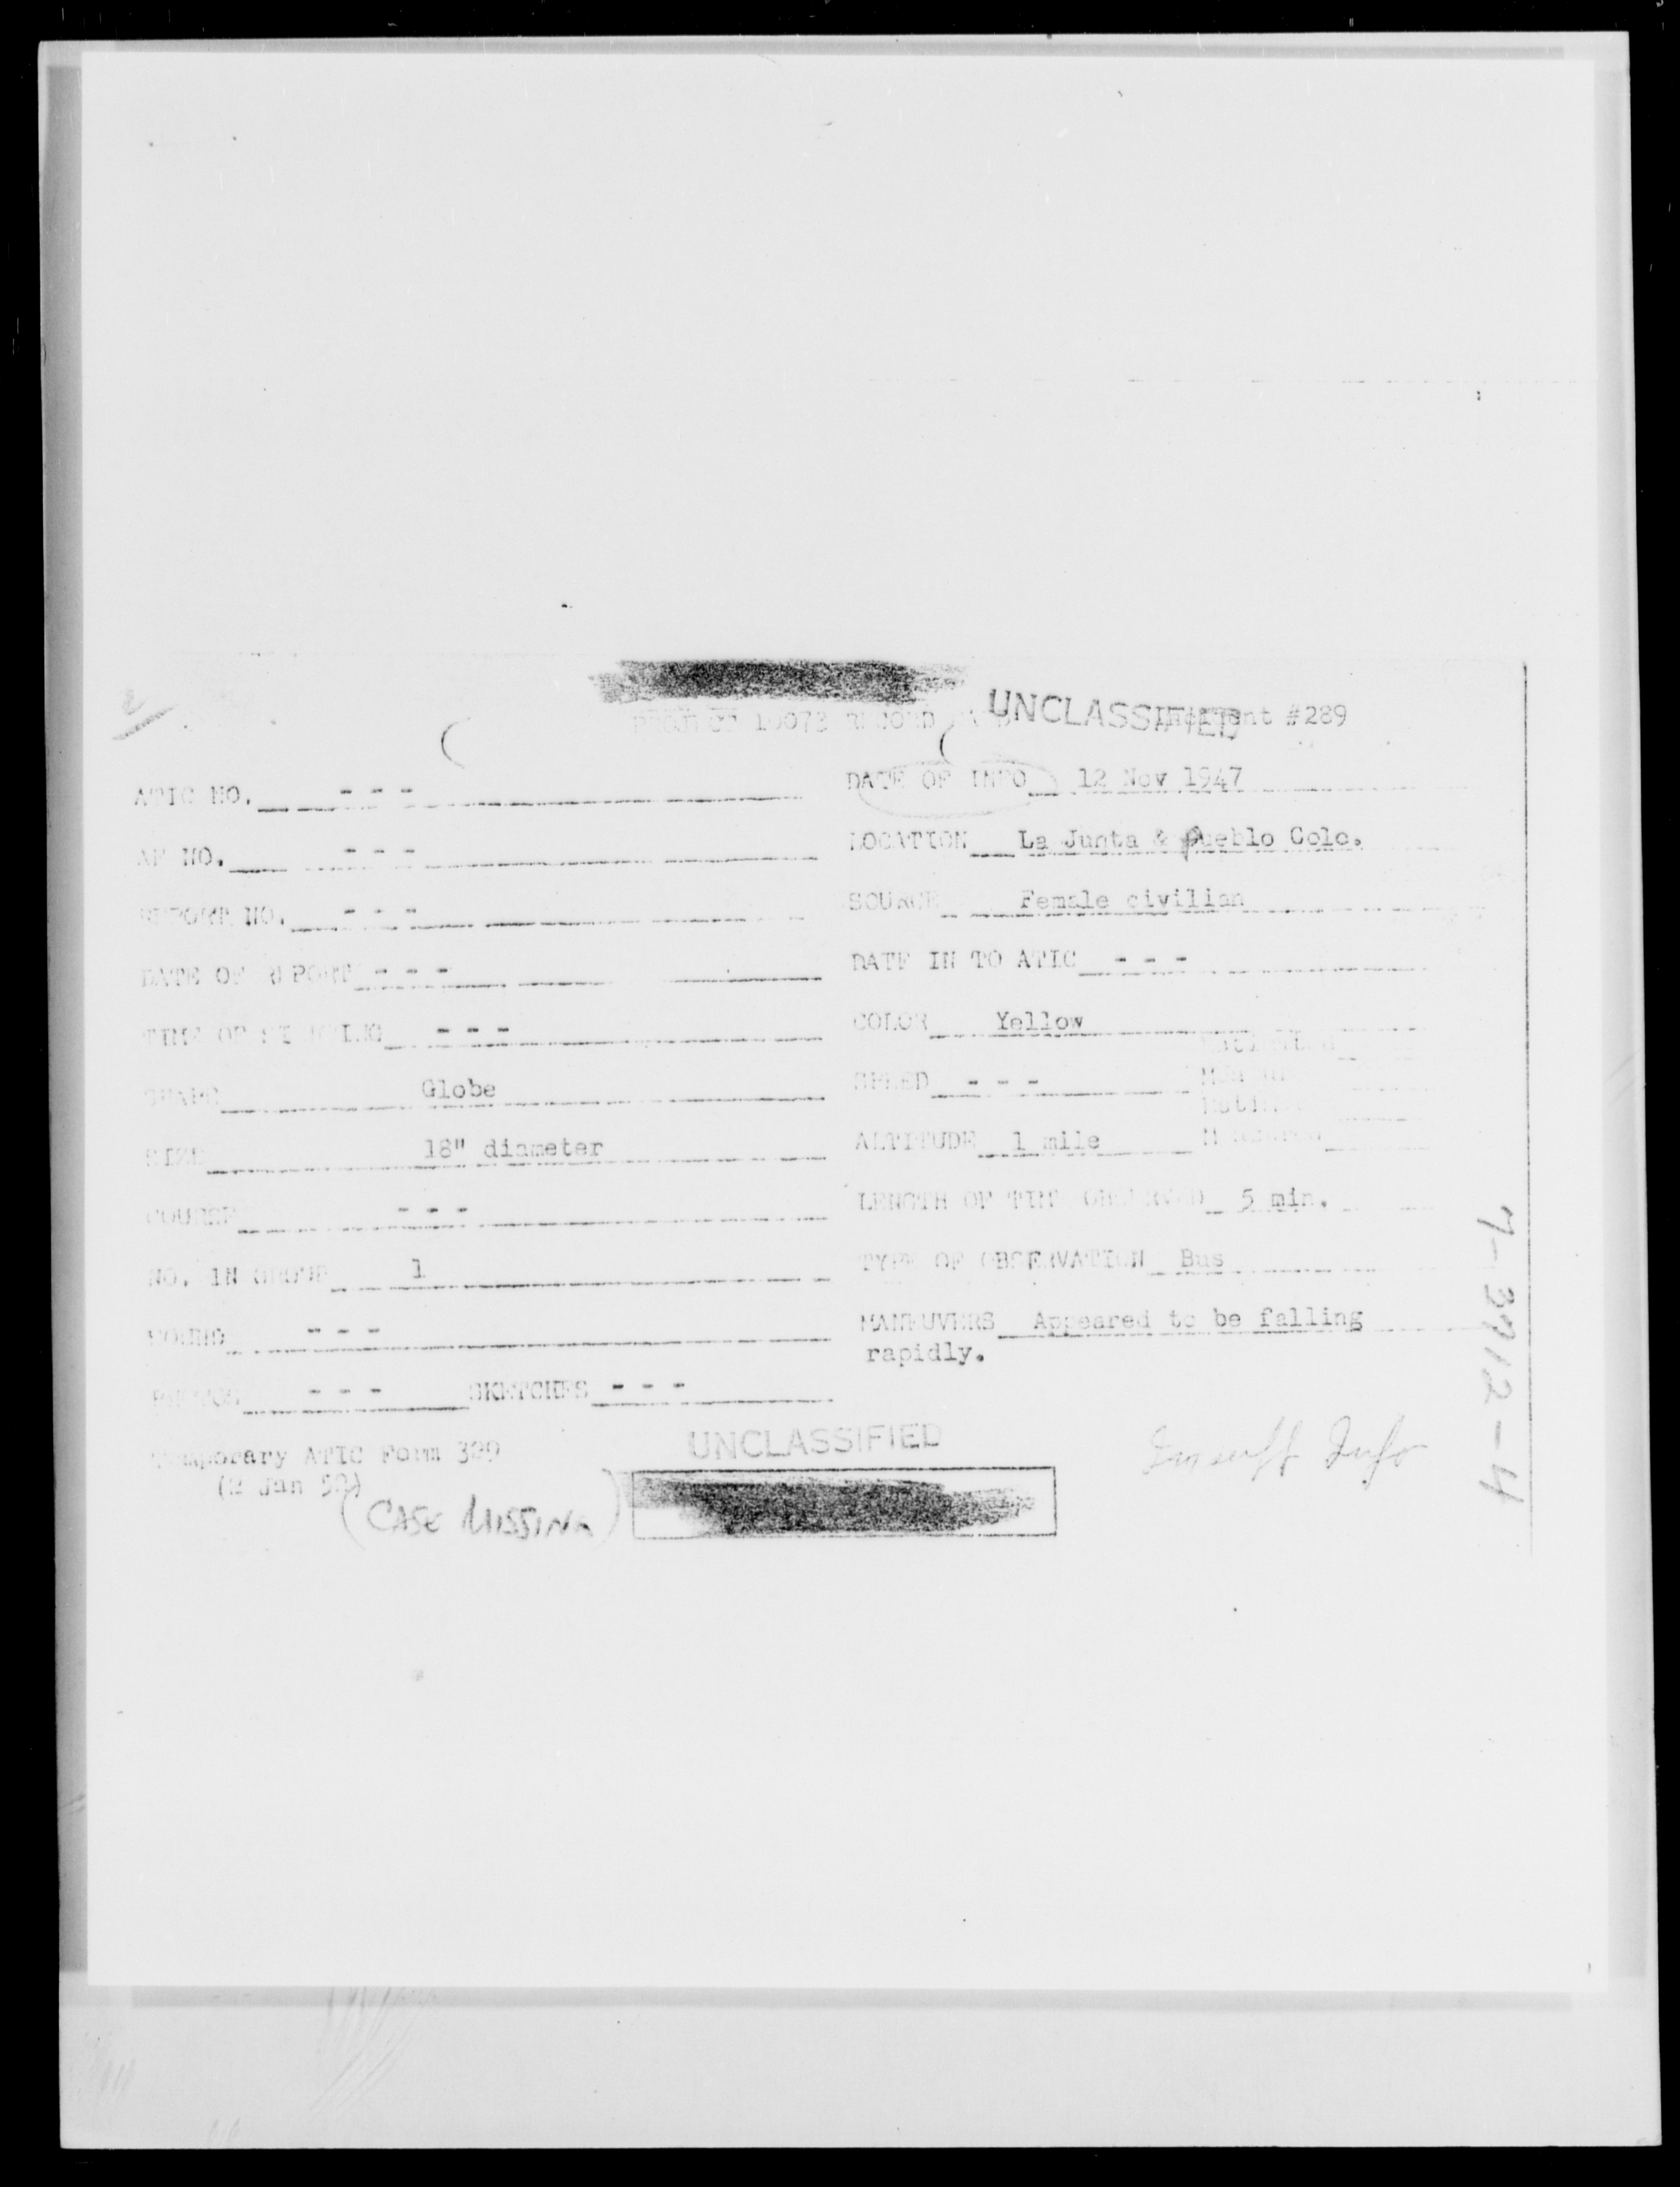 PROJECT 10073 RECORD UNCLASSIFIED Incident #289
ATIC NO. - - -
DATE OF INFO 12 Nov 1947
AF NO. - - -
LOCATION La Junta & Pueblo Colo.
REPORT NO. - - -
SOURCE Female civilian
DATE OF REPORT - - -
DATE IN TO ATIC - - -
TIME OF SIGHTING - - -
COLOR Yellow
SHAPE Globe
SPEED - - -
SIZE 18" diameter
ALTITUDE 1 mile
COURSE - - -
LENGTH OF TIME OBSERVED 5 min.
NO. IN GROUP 1
TYPE OF OBSERVATION Bus
SOUND - - -
MANEUVERS Appeared to be falling
rapidly.
PHOTOS - - - SKETCHES - - -
Temporary ATIC Form 329
(2 Jan 52)
UNCLASSIFIED
Insuff Info
(CASE MISSING)
7-3712-4